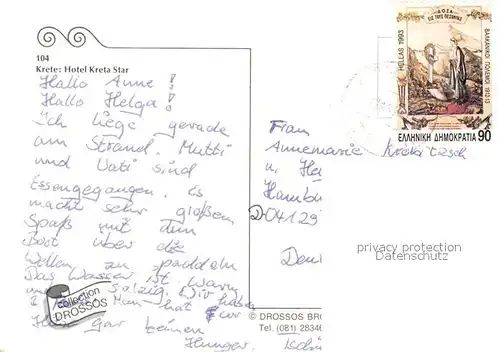 104
Krete: Hotel Kreta Star
Hallo Anne!
Hallo Helga!
Ich liege gerade
am Strand. Mutti
und Vati sind
Essengegangen. Es
macht sehr großen
Spaß mit dem
Boot über die
Wellen zu paddeln
Das Wasser ist warm
und salzig. Wir haben
Man hat hier
gar keinen
Hunger.
collection
DROSSOS
© DROSSOS BRO
Tel. (081) 28346
ΔΟΞΑ
HELLAS 1993
ΒΑΛΚΑΝΙΚΟΙ ΠΟΛΕΜΟΙ 1912-13
ΕΛΛΗΝΙΚΗ ΔΗΜΟΚΡΑΤΙΑ 90
Frau
Annemarie
u.
D-04129
privacy protection
Datenschutz